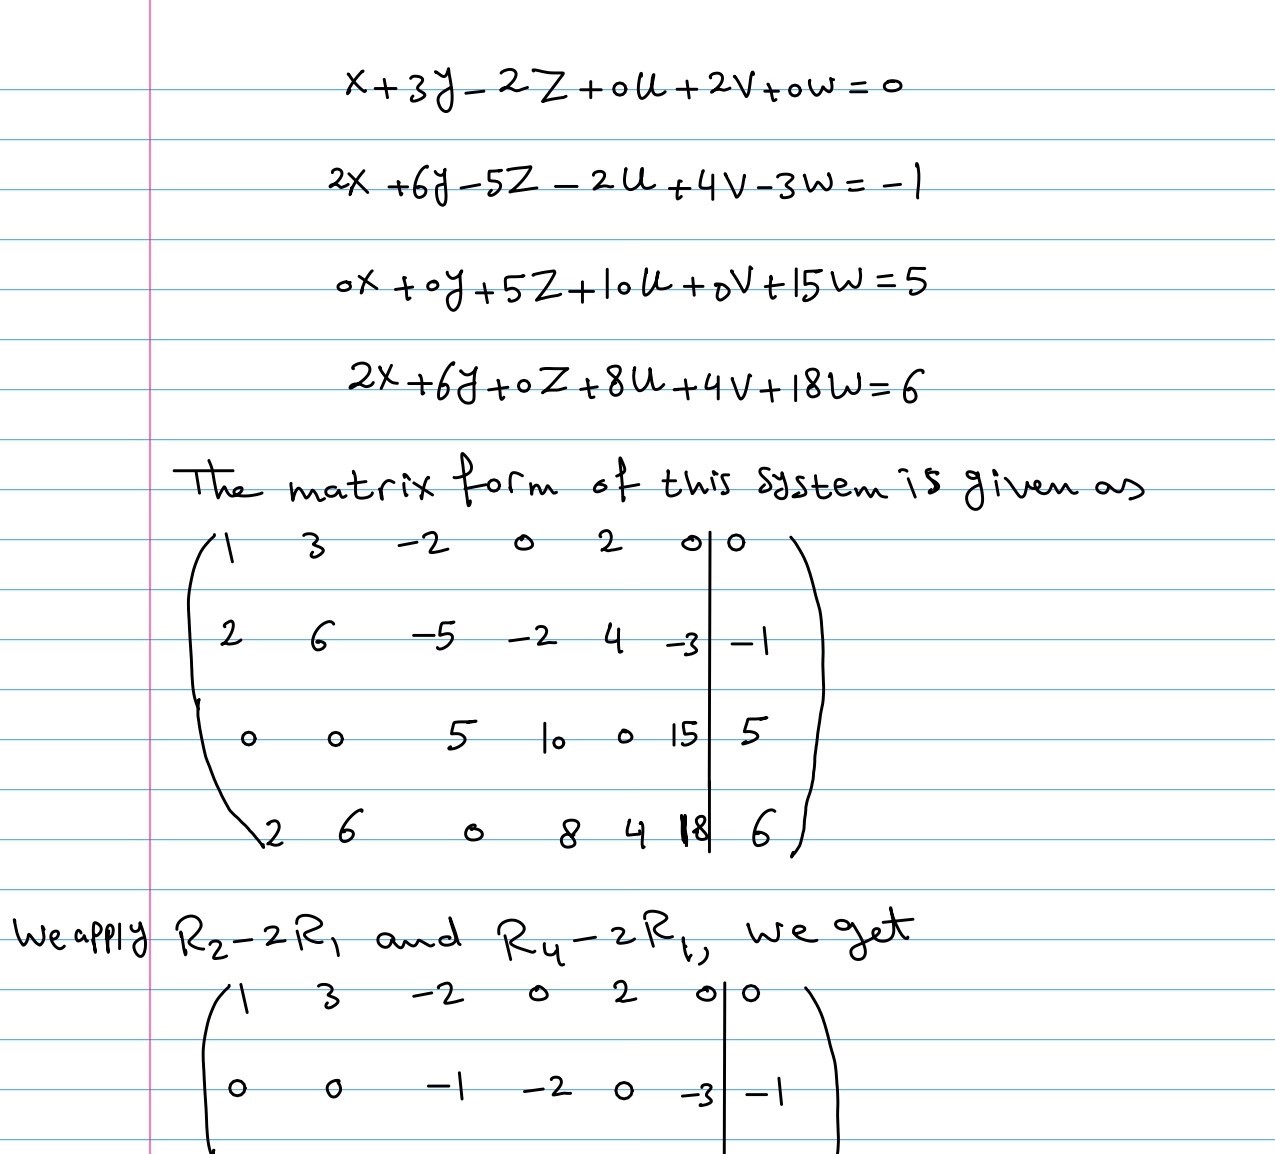 x+3y-2Z+0u+2V+0w=0
2x+6y-5Z-2u+4V-3w=-1
0x+0y+5Z+10u+0V+15w=5
2x+6y+0Z+8u+4V+18w=6
The matrix form of this system is given as
1 3 -2 0 2 0 | 0
2 6 -5 -2 4 -3 | -1
0 0 5 10 0 15 | 5
2 6 0 8 4 18 | 6
We apply R₂-2R₁ and R₄-2R₁, we get
1 3 -2 0 2 0 | 0
0 0 -1 -2 0 -3 | -1